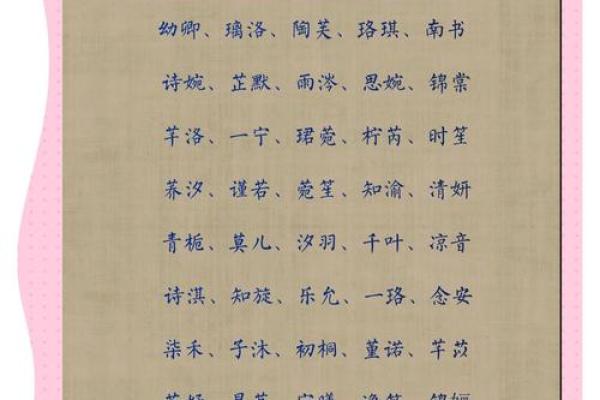 幼卿、璃洛、陶芙、珞琪、南书
诗婉、芷默、雨涔、思婉、锦棠
芊洛、一宁、珺菀、柠芮、时笙
荞汐、谨若、菀笙、知渝、清妍
青栀、莫儿、汐羽、千叶、凉音
诗淇、知旋、乐允、一珞、念安
柒禾、子沐、初桐、堇诺、芊苡